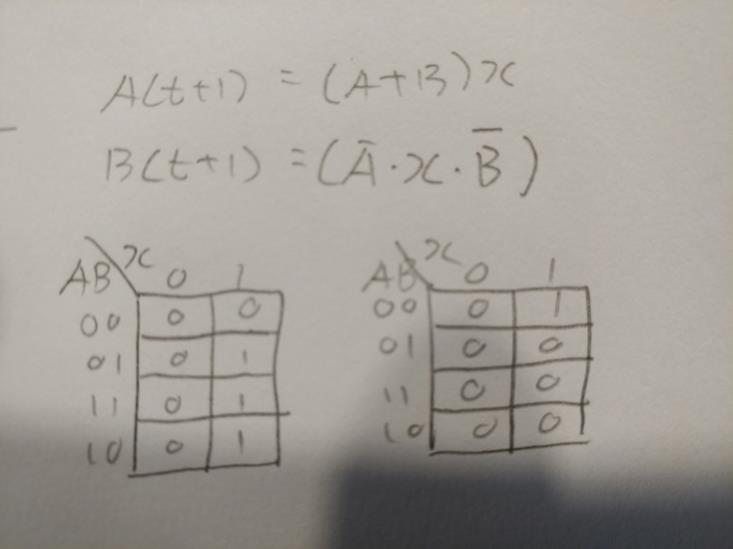 A(t+1) = (A+B)x
B(t+1) = (Ā·x·B̅)
AB x 0 1
00 0 0
01 0 1
11 0 1
10 0 1
AB x 0 1
00 0 1
01 0 0
11 0 0
10 0 0